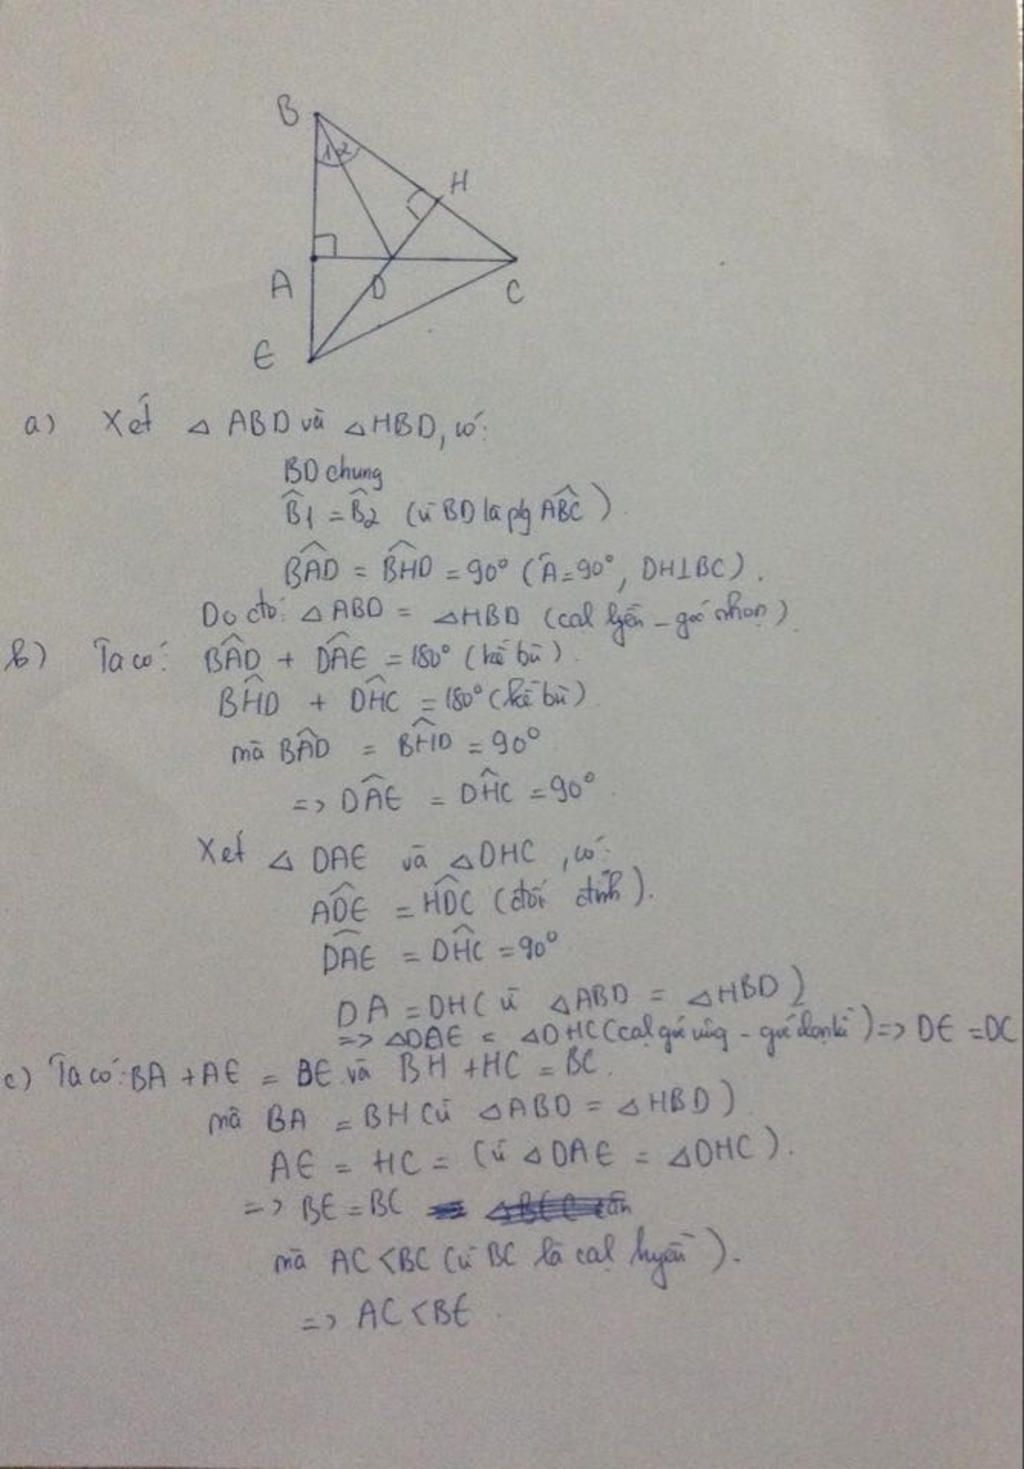 B
1 2
H
A
D
C
E
a) Xét △ ABD và △HBD, có:
BD chung
B̂1 = B̂2 (vì BD là pg ABC̑)
BAD̂ = BHD̂ = 90° (Â=90°, DH⊥BC).
Do đó: △ABD = △HBD (cạh huyền - góc nhọn)
b) Ta có: BAD̂ + DAÊ = 180° (kề bù).
BHD̂ + DHĈ = 180° (kề bù)
mà BAD̂ = BHD̂ = 90°
=> DAÊ = DHĈ = 90°.
Xét △ DAE và △DHC, có:
ADÊ = HDĈ (đối đỉnh).
DAÊ = DHĈ = 90°
DA = DH (vì △ABD = △HBD)
=> △DAE = △DHC (cạh góc vuông - góc nhọn kề) => DE = DC
c) Ta có: BA + AE = BE và BH + HC = BC.
mà BA = BH (vì △ABD = △HBD)
AE = HC = (vì △DAE = △DHC).
=> BE = BC
mà AC < BC (vì BC là cạh huyền).
=> AC < BE.